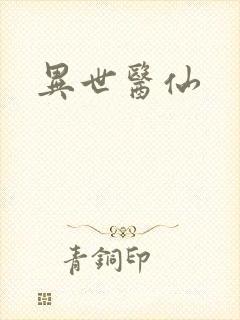 異世醫仙
青銅印